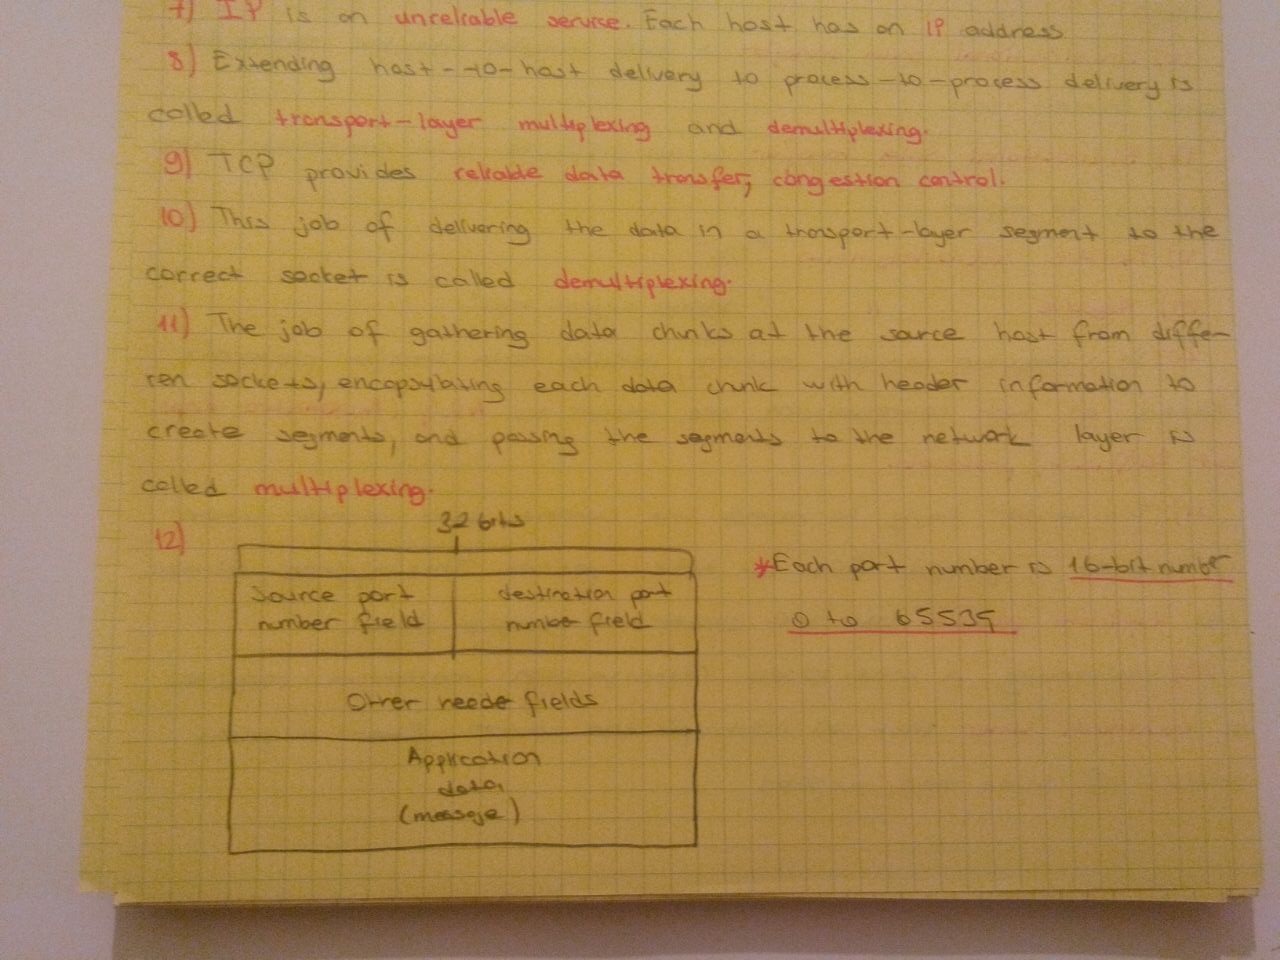 7) IP is an unreliable service. Each host has an IP address
8) Extending host-to-host delivery to process-to-process delivery is
called transport-layer multiplexing and demultiplexing.
9) TCP provides reliable data transfer, congestion control.
10) This job of delivering the data in a transport-layer segment to the
correct socket is called demultiplexing.
11) The job of gathering data chunks at the source host from diffe-
ren sockets, encapsulating each data chunk with header information to
create segments, and passing the segments to the network layer is
called multiplexing.
12)
32 bits
source port destination port
number field number field
Other heade fields
Application
data
(message)
*Each port number is 16-bit number
0 to 65535